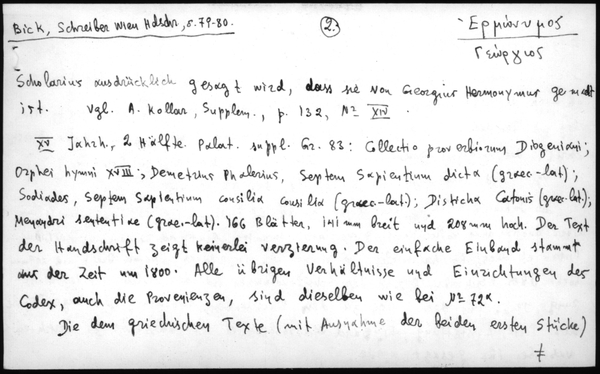 Bick, Schreiber Wien Hdschr, s. 79-80.
2.
Ἑρμώνυμος
Γεώργιος
Scholarius ausdrücklich gesagt wird, dass sie von Georgius Hermonymus gemacht
ist. Vgl. A. Kollar, Supplem., p. 132, No XIV.
XV Jahrh., 2 Hälfte. Palat. suppl. Gr. 83: Collectio proverbiorum Diogeniani;
Orphei hymni XVIII; Demetrius Phalerius, Septem Sapientium dicta (graec-lat);
Sodiades, Septem Sapientium consilia consilia (graec-lat); Disticha Catonis (graec-lat);
Menandri sententiae (graec-lat). 166 Blätter, 141 mm breit und 208 mm hoch. Der Text
der Handschrift zeigt keinerlei verzierung. Der einfache Einband stammt
aus der Zeit um 1800. Alle übrigen Verhältnisse und Einrichtungen des
Codex, auch die Provenienzen, sind dieselben wie bei No 72a.
Die dem griechischen Texte (mit Ausnahme der beiden ersten Stücke)